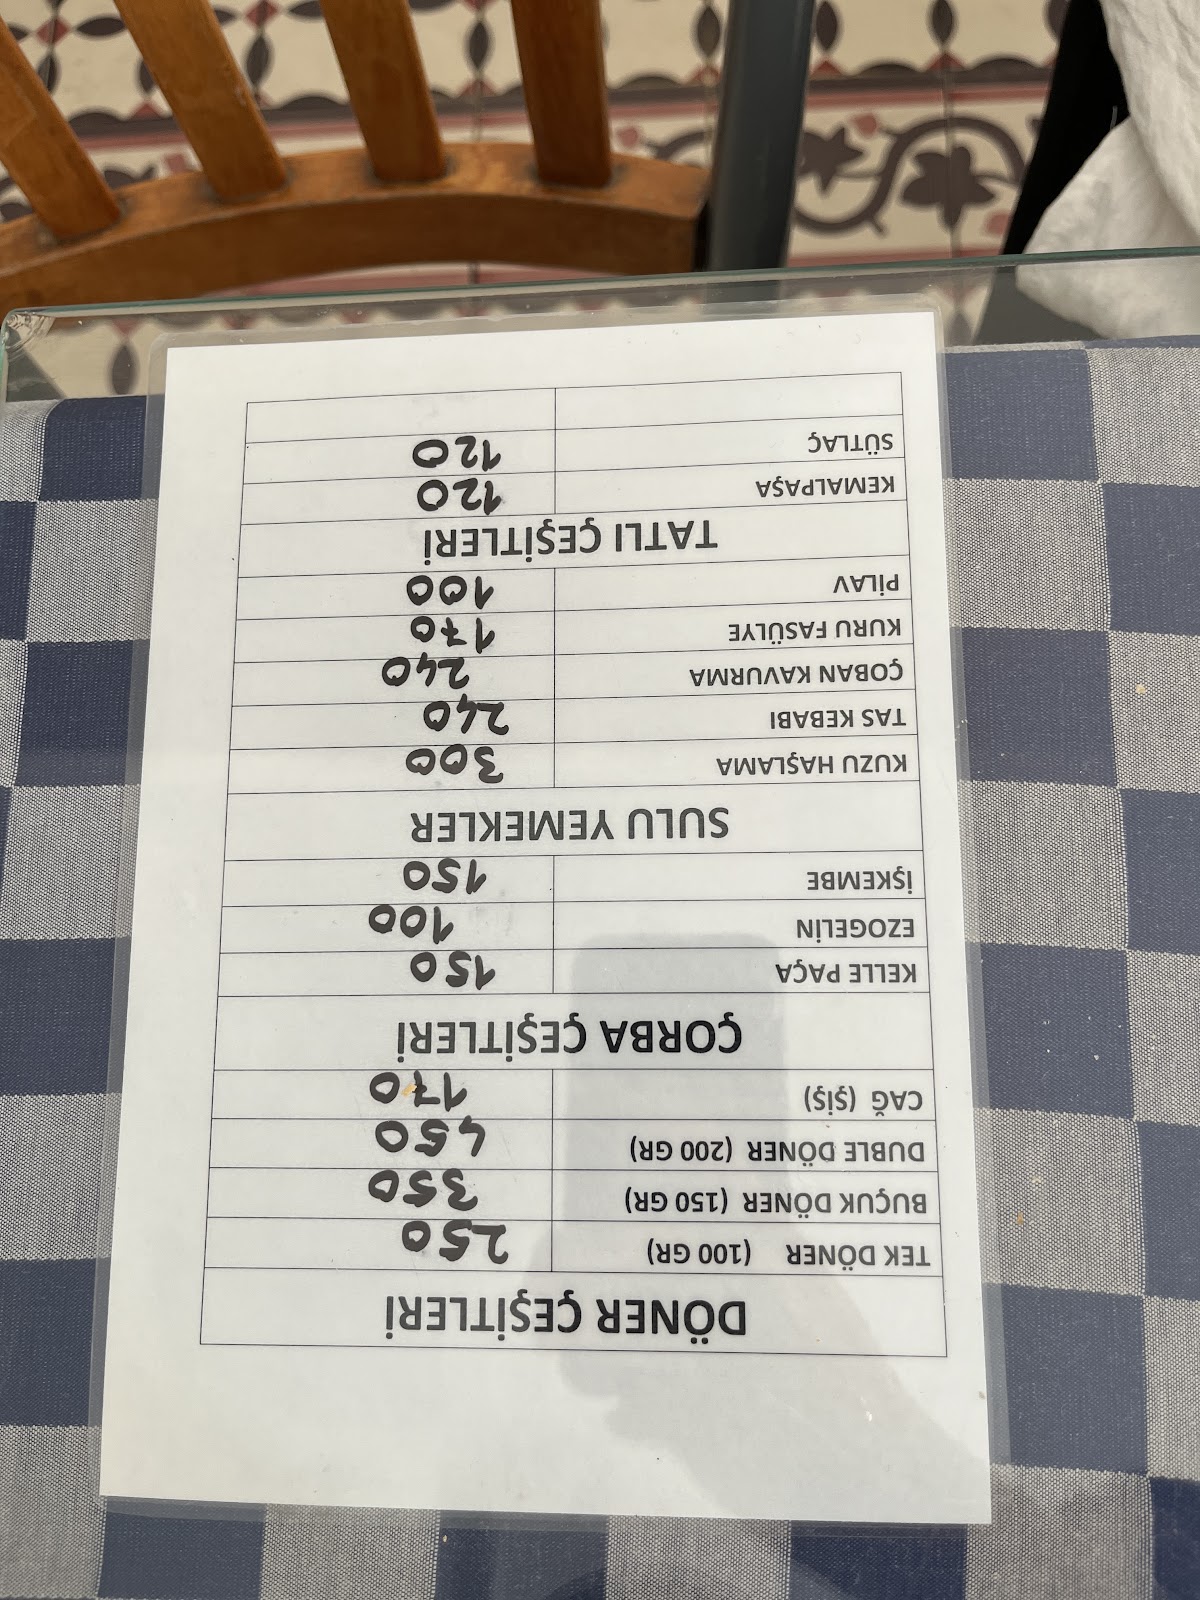 DÖNER ÇEŞİTLERİ
TEK DÖNER (100 GR) 250
BUÇUK DÖNER (150 GR) 350
DUBLE DÖNER (200 GR) 450
CAĞ (ŞİŞ) 170
ÇORBA ÇEŞİTLERİ
KELLE PAÇA 150
EZOGELİN 100
İŞKEMBE 150
SULU YEMEKLER
KUZU HAŞLAMA 300
TAS KEBABI 240
ÇOBAN KAVURMA 240
KURU FASÜLYE 170
PİLAV 100
TATLI ÇEŞİTLERİ
KEMALPAŞA 120
SÜTLAÇ 120